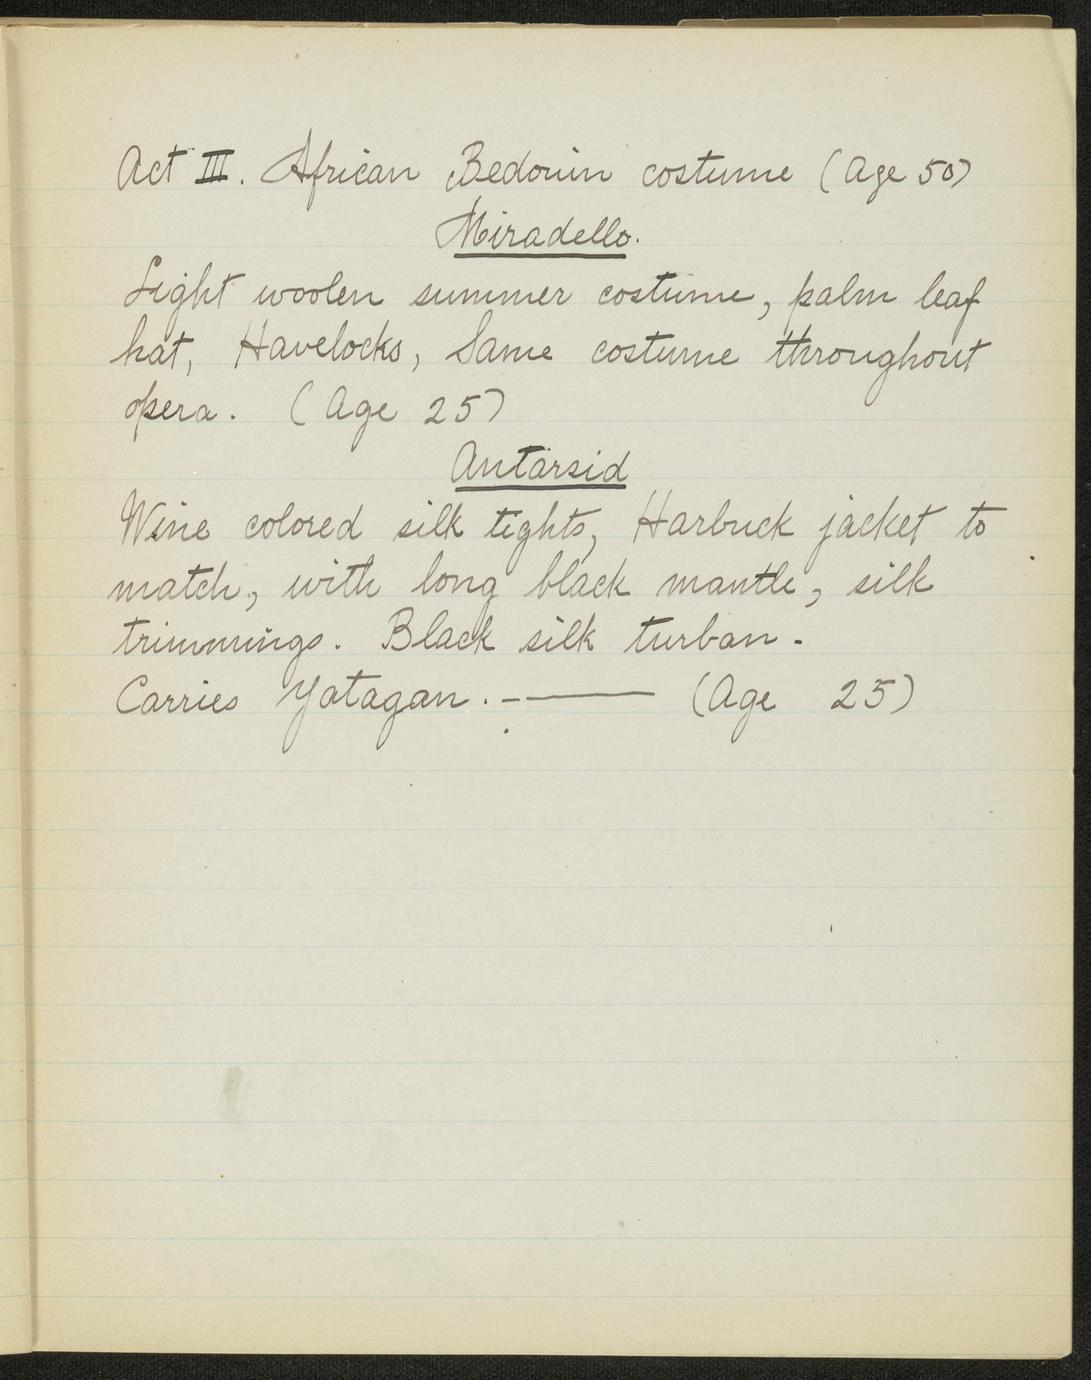 Act III. African Bedouin costume (Age 50)
Miradello.
Light woolen summer costume, palm leaf
hat, Havelocks, Same costume throughout
opera. (Age 25)
Antarsid
Wine colored silk tights, Harbuck jacket to
match, with long black mantle, silk
trimmings. Black silk turban.
Carries Yatagan. - — (Age 25)